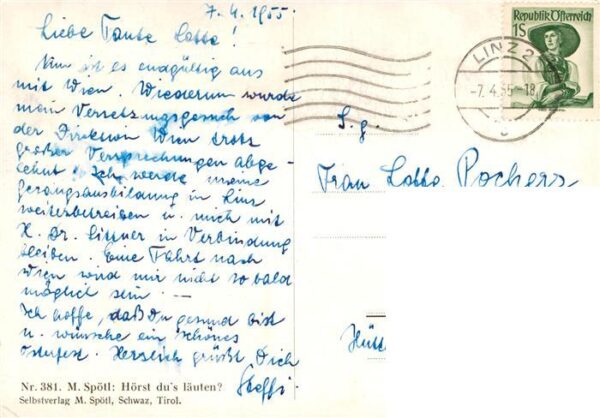 7.4.1955.
Liebe Tante Lotte!
Nun ist es endgültig aus
mit Wien. Wiederum wurde
mein Versetzungsgesuch von
der Direktion Wien trotz
großer Versprechungen abge-
lehnt! Ich werde meine
Gesangsausbildung in Linz
weiterbetreiben u. mich mit
H. Dr. Littner in Verbindung
bleiben. Eine Fahrt nach
Wien wird mir nicht so bald
möglich sein. —
Ich hoffe, daß Du gesund bist
u. wünsche ein schönes
Osterfest. Herzlich grüßt Dich
Steffi.
Nr. 381. M. Spötl: Hörst du's läuten?
Selbstverlag M. Spötl, Schwaz, Tirol.
Republik Österreich
1S
LINZ 2
-7.4.55-18
S. g.
Frau Lotte Pochers
Hütt